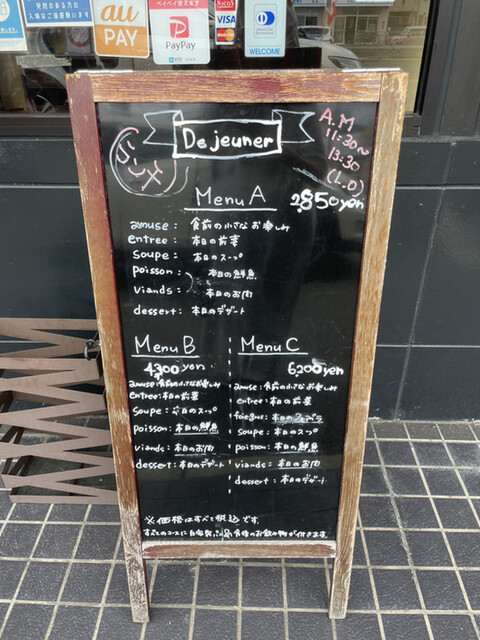 au
PAY
PayPay
VISA
WELCOME
Dejeuner
ランチ
A.M
11:30~
13:30
(L.O)
Menu A
2,850yen
amuse: 食前の小さなお楽しみ
entree: 本日の前菜
soupe: 本日のスープ
poisson: 本日の鮮魚
viands: 本日のお肉
dessert: 本日のデザート
Menu B
4,300yen
amuse:食前の小さなお楽しみ
entree:本日の前菜
soupe:本日のスープ
poisson:本日の鮮魚
viands:本日のお肉
dessert:本日のデザート
Menu C
6,200yen
amuse:食前の小さなお楽しみ
entree:本日の前菜
本日の
soupe:本日のスープ
poisson:本日の鮮魚
viands:本日のお肉
dessert:本日のデザート
※価格はすべて税込です。
すべてのコースに自家製パン、食後のお飲み物が付きます。